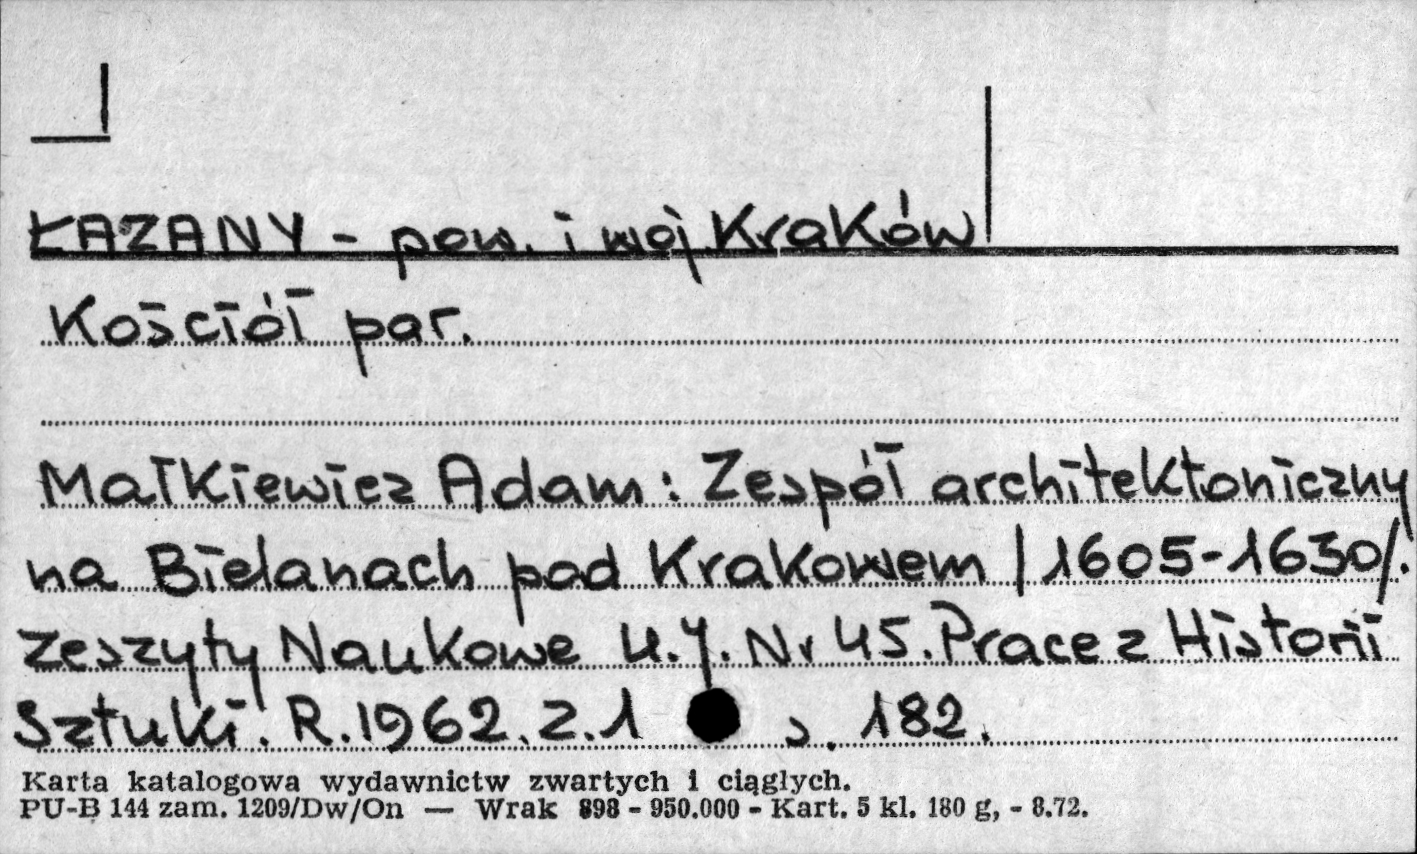 ŁAZANY - pow. i woj Kraków
Kościół par.
Małkiewicz Adam: Zespół architektoniczny
na Bielanach pod Krakowem /1605-1630/.
Zeszyty Naukowe U.J. Nr 45. Prace z Historii
Sztuki. R.1962. z.1 s. 182.
Karta katalogowa wydawnictw zwartych i ciągłych.
PU-B 144 zam. 1209/Dw/On — Wrak 898 - 950.000 - Kart. 5 kl. 180 g, - 8.72.